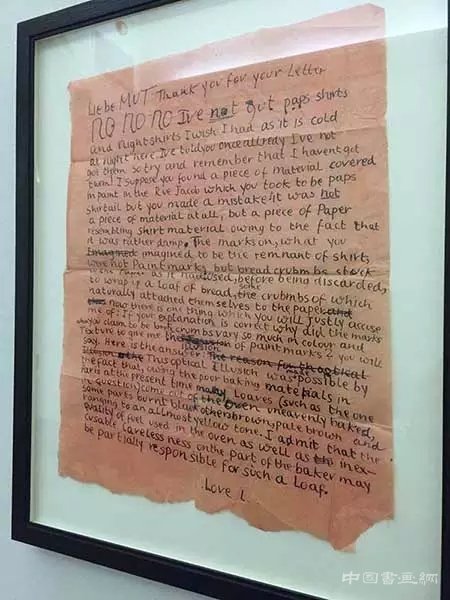 Liebe MUT Thank you for your Letter
NO NO NO I've not got paps shirts
and nightshirts I wish I had as it is cold
at night here I've told you once allredy I've not
got them so try and remember that I havent got
them! I suppose you found a piece of material covered
in paint in the Rue Jacob which you took to be paps
shirtail but you made a mistake it was not
a piece of material at all, but a piece of Paper
resembling shirt material owing to the fact that
it was rather damp. The marks on, what you
imagined imagined to be the remnant of shirt,
were not Paint marks, but bread crumbs stuck
as it had used, before being discarded,
to wrap up a loaf of bread, some the crubmbs of which
naturally attained themselves to the paper and
now there is one thing which you will justly accuse
me of: If your explanation is correct why did the marks
what you claim to be bread crumbs vary so much in colour and
Texture to give me the illusion of paint marks? you will
say. Here is the answer: The reason for the optical
illusion This optical illusion was made possible by
the fact that, owing to the poor baking materials in
Paris at the present time many Loaves (such as the one
in question) come out of the oven uneavenly baked,
some parts burnt black others brown, pale brown and
ranging to an allmost yellow tone. I admit that the
quality of fuel used in the oven as well as the inex-
cusable carelessness on the part of the baker may
be partially responsible for such a loaf.
Love L.
中国书画网